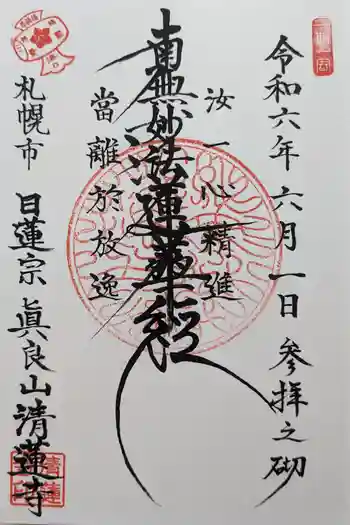 令和六年六月一日参拝之砌
汝一心精進
南無妙法蓮華経
當離於放逸
札幌市 日蓮宗 眞良山清蓮寺